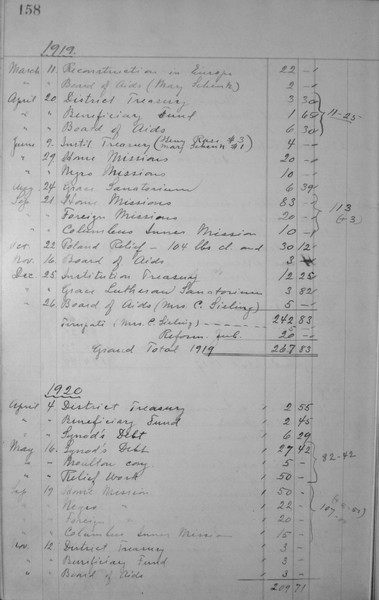 158
1919.
March 11. Reconstruction in Europe 22 —
" " Board of Aids (May Schenk) 2 —
April 20. District Treasury 3 30
" " Beneficiary Fund 1 65
" " Board of Aids 6 30
11-25
June 9. Instit. Treasury (Henry Ross #3 Mary Schenk #1) 4 —
" 29. Home Missions 20 —
" " Negro Missions 10 —
Aug 24. Grace Sanatorium 6 39
Sep 21. Home Missions 83 —
" " Foreign Missions 20 —
" " Columbus Inner Mission 10 —
113
Oct. 22 Poland Relief — 104 lbs cl. and 30 12
Nov. 16 Board of Aids 3
Dec 25 Institution Treasury 12 25
" " Grace Lutheran Sanatorium 3 82
" 26 Board of Aids (Mrs. C. Sieling) 5 —
242 83
(Mrs. C. Sieling) 5
Reform. Jub. 20 —
Grand Total 1919 267.83
1920
April 4. District Treasury 2 55
" " Beneficiary Fund 2 45
" " Synod's Debt 6 29
May 16. Synod's Debt 27 42
" " Moulton cong. 5 —
" " Relief Work 50 —
82-42
Sep 19 Home Mission 50 —
" " Negro " 22 —
" " Foreign " 20 —
" " Columbus Inner Mission 15 —
107
Nov. 12. District Treasury 3 —
" " Beneficiary Fund 3 —
" " Board of Aids 3 —
209 71